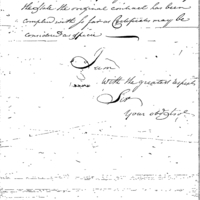 the Sale the original contract has been
complied with so far as Certificates may be
considered as
I am
With the greatest respect
Sir
Your obt Servt